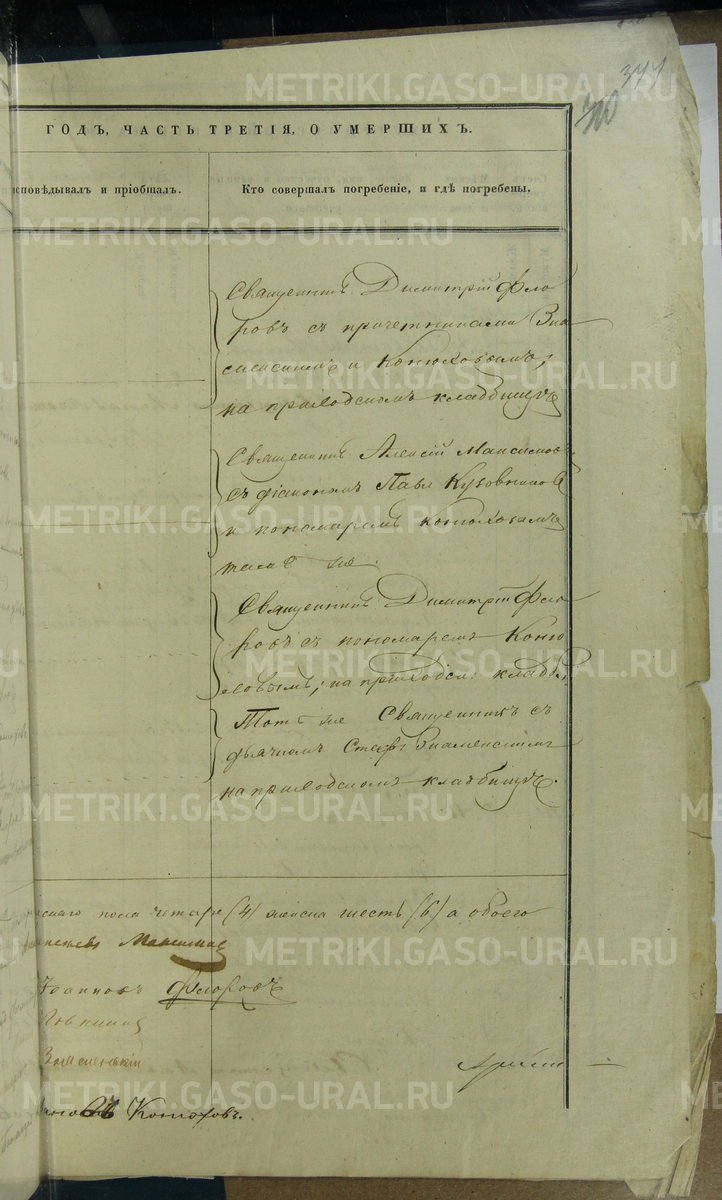 377
ГОДЪ, ЧАСТЬ ТРЕТІЯ, О УМЕРШИХЪ.
исповѣдывалъ и пріобщалъ.
Кто совершалъ погребеніе, и гдѣ погребены.
Священникъ Димитрій Фло
ровъ съ причетниками Зна
менскимъ и Конюховымъ,
на приходскомъ кладбищѣ
Священникъ Алексій Максимовъ
съ діакономъ Павл Кузовниковъ
и пономаремъ Конюховымъ
тамъ же
Священникъ Димитрій Фло
ровъ съ пономаремъ Коню
ховымъ; на приходск: кладб:
Тотъ же Священникъ съ
дьячкомъ Стеф: Знаменскимъ
на приходскомъ кладбищѣ.
скаго пола четыре (4) женска шесть (6) а обоего
Максимов
Іоанновъ Флоровъ
Знаменскій
Конюховъ.
METRIKI.GASO-URAL.RU